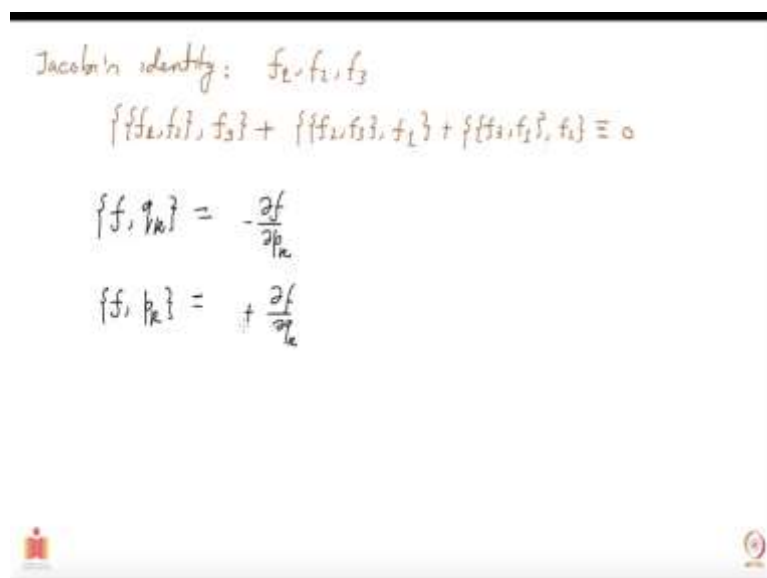 Jacobi's identity: f₁, f₂, f₃
{{f₁,f₂}, f₃} + {{f₂,f₃}, f₁} + {{f₃,f₁}, f₂} ≡ 0
{f, qₖ} = - ∂f/∂pₖ
{f, pₖ} = + ∂f/∂qₖ